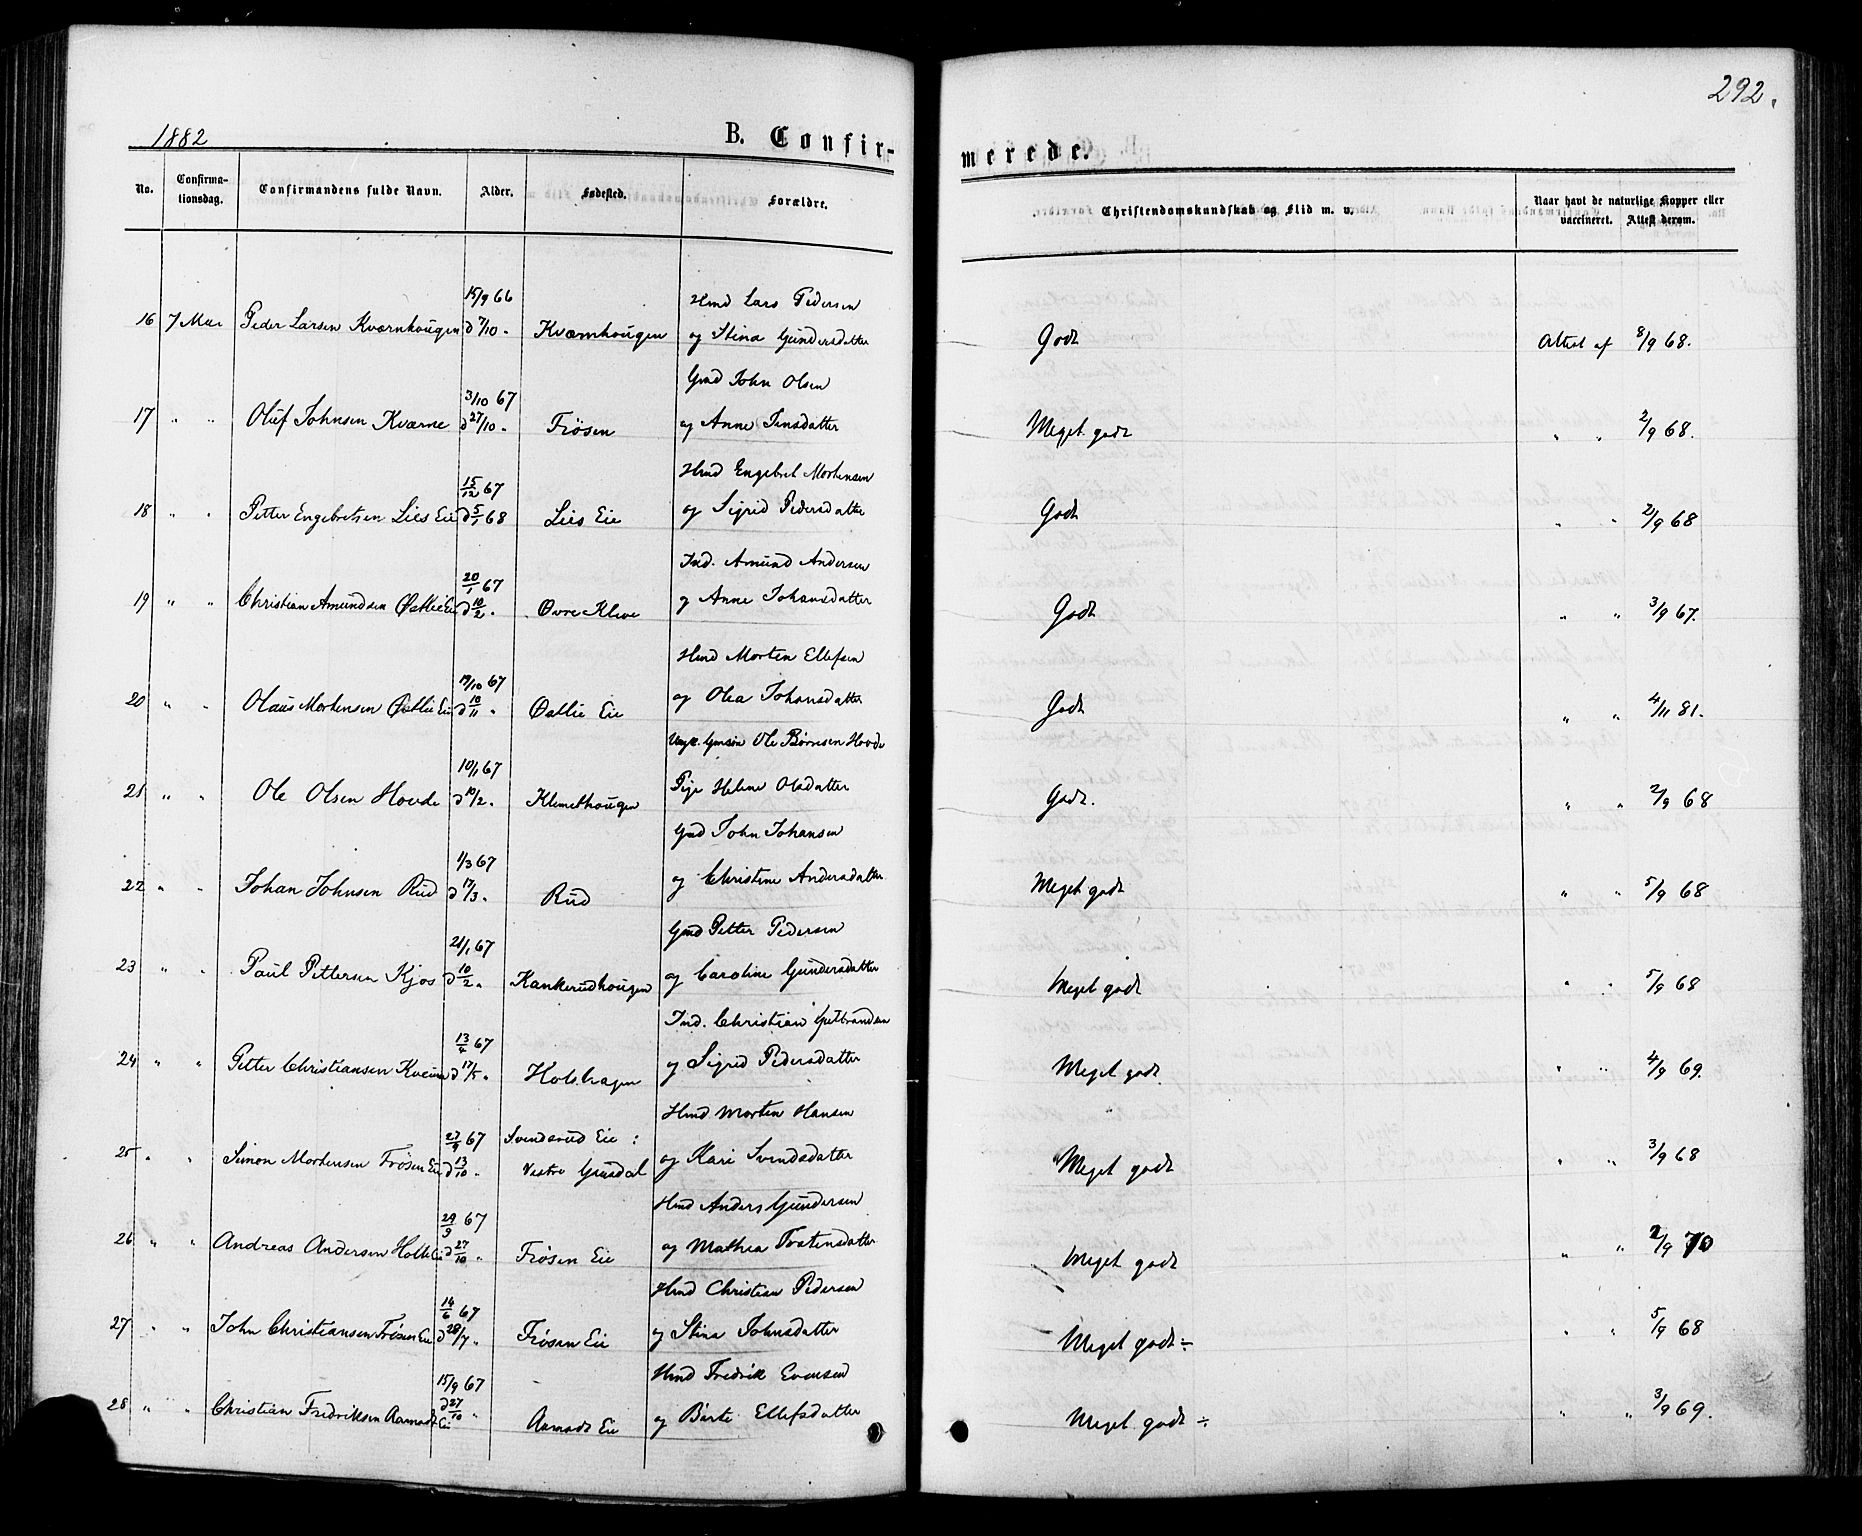 292.
1882
B. Confir-
merede.
No.
Confirma-
tionsdag.
Confirmandens fulde Navn.
Alder.
Fødested.
Forældre.
Christendomskundskab og Flid m. v.
Naar havt de naturlige Kopper eller
vaccineret. Attest derom.
15/9 66 Hmd Lars Pedersen
16 7 Mai Peder Larsen Kværnhougen d 7/10 " Kværnhougen og Stina Gundersdatter Godt Attest af 8/9 68.
3/10 67 Gmd John Olsen
17 " " Oluf Johnsen Kværne d 27/10 " Frøsen og Anne Jensdatter Meget godt " " 2/9 68.
15/12 67 Hmd Engebret Mortensen
18 " " Petter Engebretsen Lies Eie d 5/1 68 Lies Eie og Sigrid Pedersdatter Godt " " 2/9 68
20/1 67 Ind. Amund Andersen
19 " " Christian Amundsen Østlie Eie d 10/2 " Øvre Kleve og Anne Johansdatter Godt " " 3/9 67.
19/10 67 Hmd Morten Ellefsen
20 " " Olaus Mortensen Østlie Eie d 10/11 " Østlie Eie og Olea Johansdatter Godt " " 4/11 81.
10/1 67 Ungk. Ole Børresen Hovde
21 " " Ole Olsen Hovde d 10/2 " Klemethougen Pige Helene Olsdatter Godt. " " 2/9 68
1/3 67 Gmd John Johansen
22 " " Johan Johnsen Rud d 17/3 " Rud og Christine Andersdatter Meget godt " " 5/9 68
21/1 67 Gmd Petter Pedersen
23 " " Paul Pettersen Kjos d 10/2 " Kankerudhougen og Caroline Gundersdatter Meget godt " " 5/9 68
13/4 67 Ind. Christian Gulbrandsen
24 " " Petter Christiansen d 17/5 " Holshagen og Sigrid Pedersdatter Meget godt " " 4/9 69.
27/9 67 Svenderud Eie : Hmd Morten Hansen
25 " " Simon Mortensen Frøsen Eie d 13/10 " Vestre Gausdal og Kari Svendsdatter Meget godt " " 3/9 68
29/9 67 Hmd Anders Gundersen
26 " " Andreas Andersen d 27/10 " Frøsen Eie og Mathea Tostensdatter Meget godt " " 2/9 70
14/6 67 Hmd Christian Pedersen
27 " " John Christiansen Frøsen Eie d 28/7 " Frøsen Eie og Stina Johnsdatter Meget godt ÷ " " 5/9 68
15/9 67 Hmd Fredrik Evensen
28 " " Christian Fredriksen Aamodt Eie d 27/10 " Aamodt Eie og Berte Ellefsdatter Meget godt ÷ " " 3/9 69.